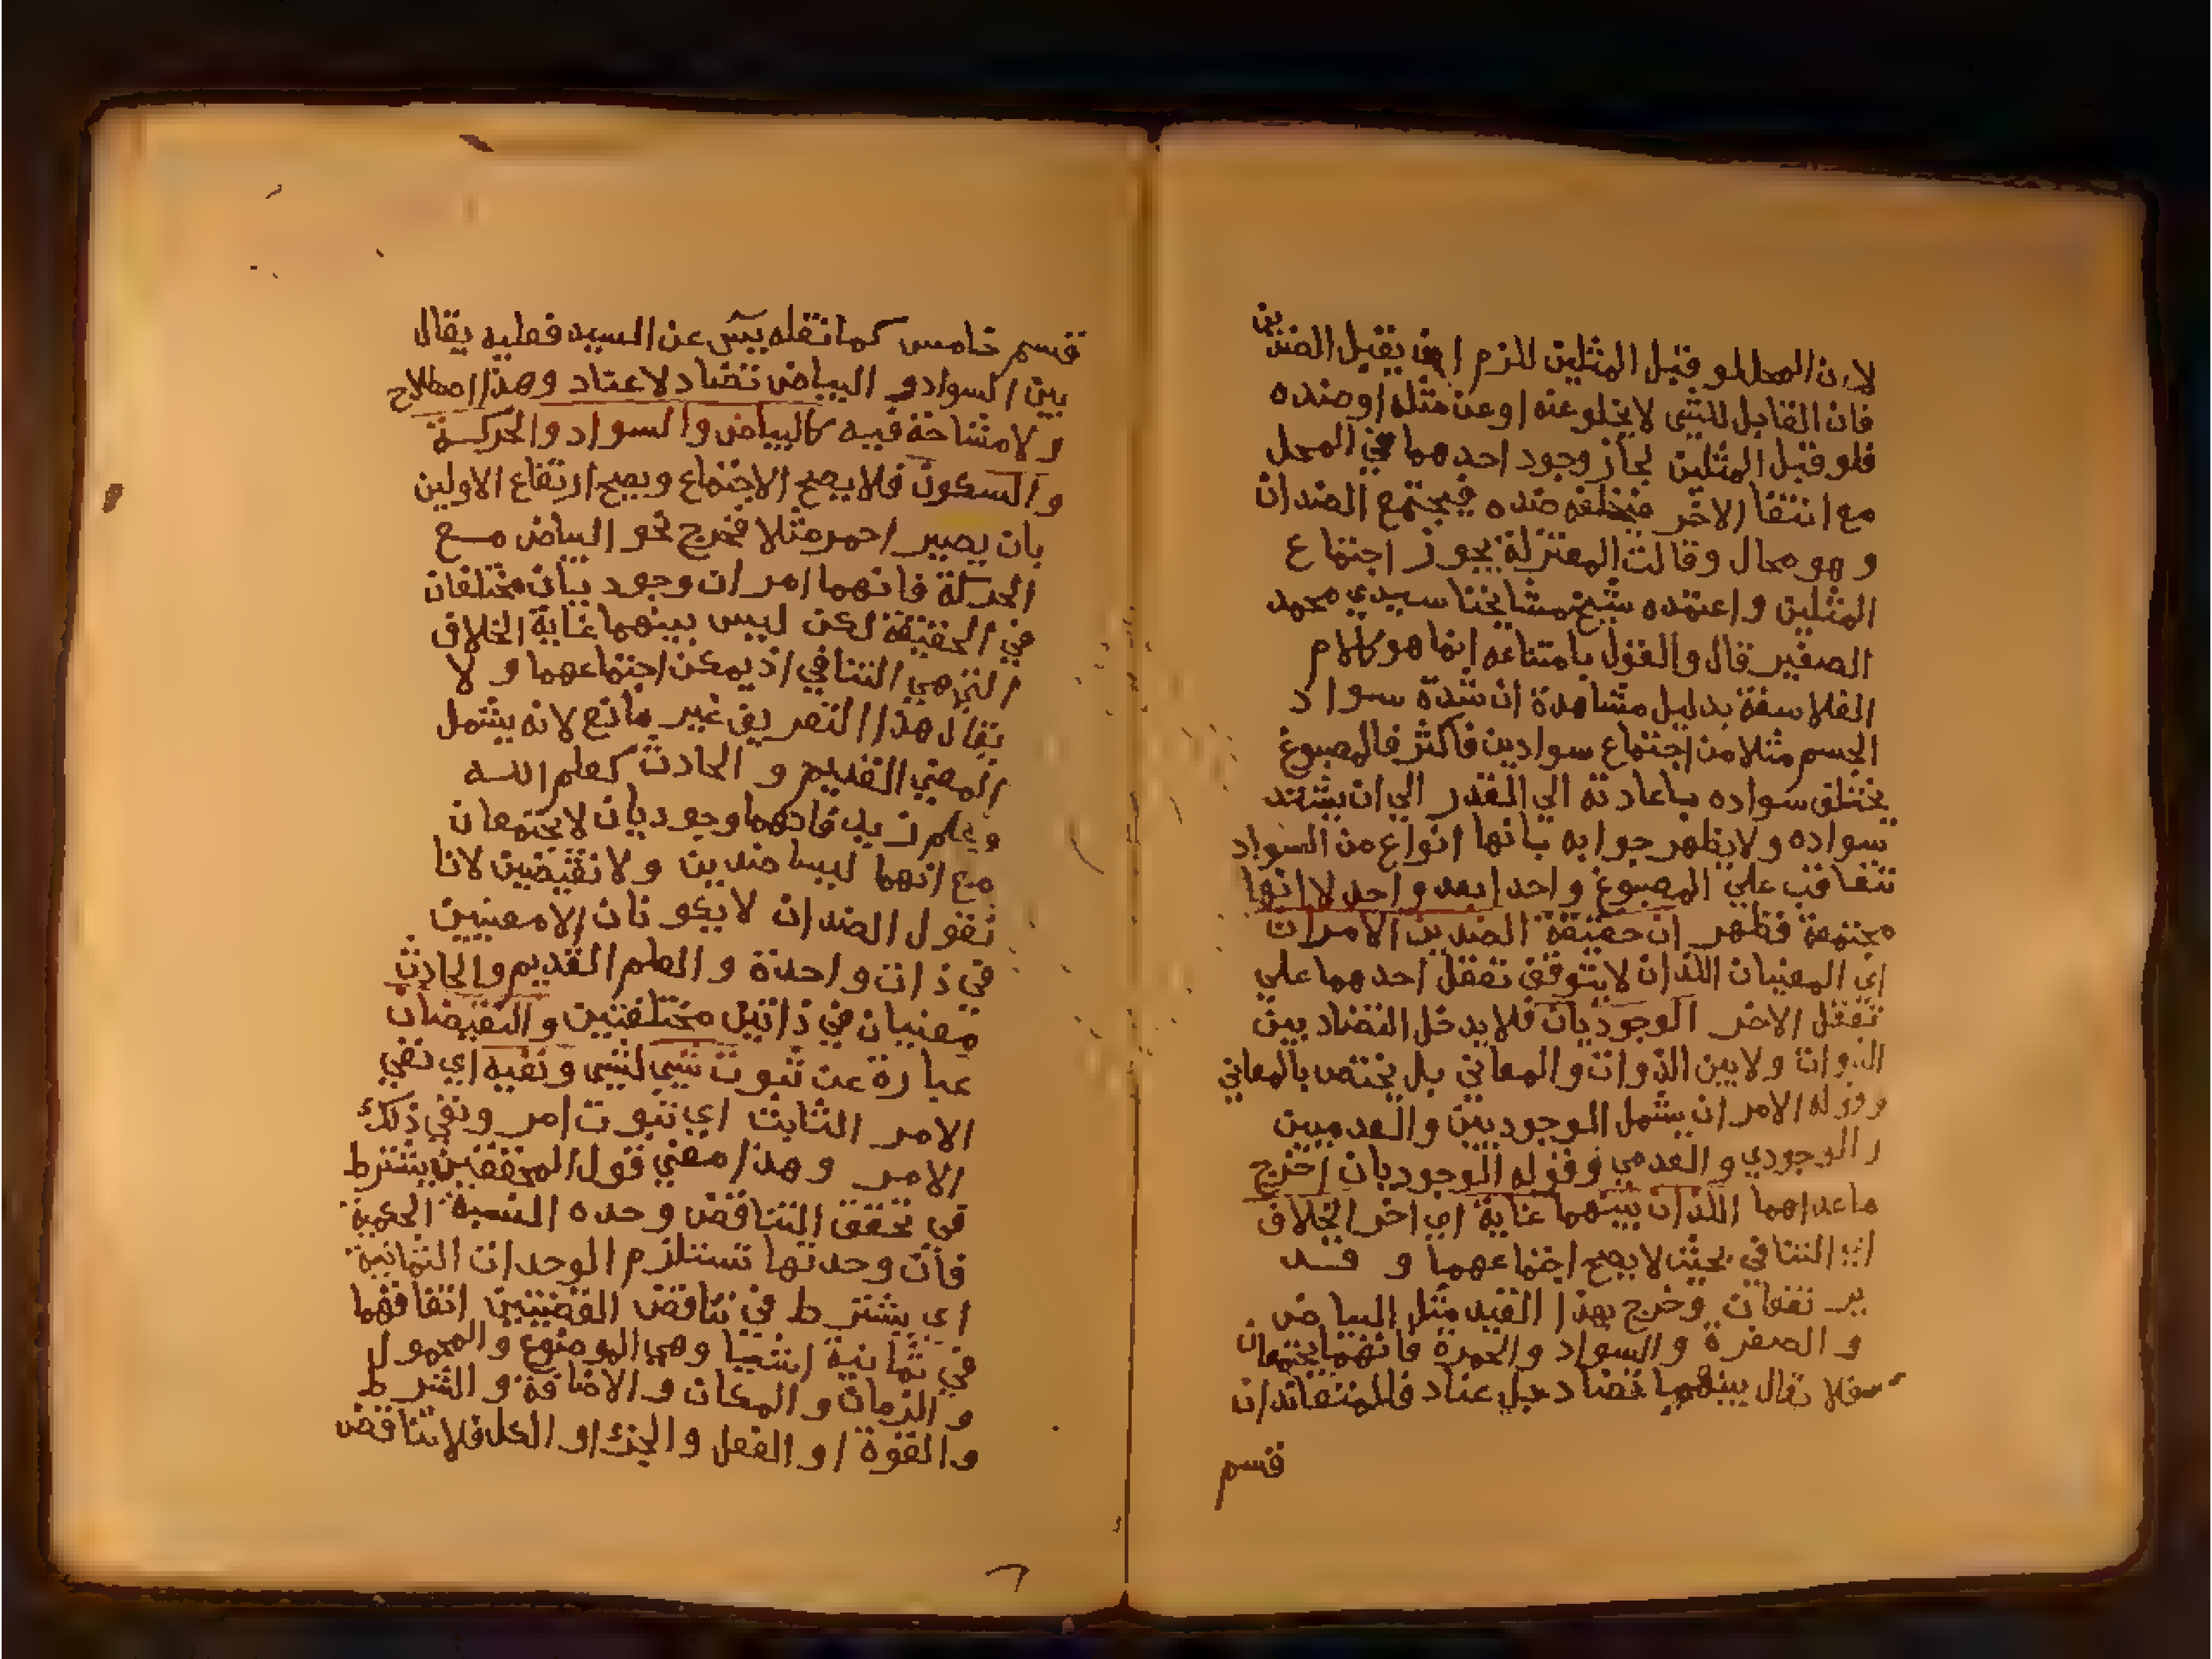 لان المحل لو قبل المثلين للزم ان يقبل الضدين
فان القابل للشي لا يخلو عنه او عن مثله او ضده
فلو قبل المثلين لجاز وجود احدهما في المحل
مع انتفا الاخر فيخلفه ضده فيجتمع الضدان
و هو محال وقالت المعتزلة يجوز اجتماع
المثلين واعتمده شيخ مشايخنا سيدي محمد
الصغير قال والقول بامتناعه انما هو كلام
الفلاسفة بدليل مشاهدة ان شدة سواد
الجسم مثلا من اجتماع سوادين فاكثر فالمصبوغ
يختلف سواده باعادته الي القدر الي ان يشتد
سواده ولا يظهر جوابه بانها انواع من السواد
تتعاقب علي المصبوغ واحدا بعد واحد لا انها
مجتمعة فظهر ان حقيقة الضدين الامران
اي المعنيان اللذان لا يتوقف تعقل احدهما علي
تعقل الاخر الوجوديان فلا يدخل التضاد بين
الذوات ولا بين الذوات والمعاني بل يختص بالمعاني
وقوله الامران يشمل الوجوديين والعدميين
والوجودي والعدمي وقوله الوجوديان اخرج
ماعداهما اللذان بينهما غاية اي اخر الخلاف
اي التنافي بحيث لا يصح اجتماعهما و قد
يرتفعان وخرج بهذا القيد مثل البياض
و الصفرة والسواد والحمرة فانهما يجتمعان
فلا يقال بينهما تضاد بل عناد فالمتعاندان
قسم
قسم خامس كما نقله يس عن السيد فعليه يقال
بين السواد و البياض تضاد لا عناد وهذا اصطلاح
ولا مشاحة فيه كالبياض والسواد والحركة
والسكون فلا يصح الاجتماع ويصح ارتفاع الاولين
بان يصير احمر مثلا فخرج نحو البياض مع
الحركة فانهما امران وجوديان مختلفان
في الحقيقة لكن ليس بينهما غاية الخلاف
التي هي التنافي اذ يمكن اجتماعهما و لا
يقال هذا التعريف غير مانع لانه يشمل
المعني القديم و الحادث كعلم الله
وعلم زيد فانهما وجوديان لا يجتمعان
مع انهما ليسا ضدين ولا نقيضين لانا
نقول الضدان لا يكونان الا معنيين
في ذات واحدة والعلم القديم والحادث
معنيان في ذاتين مختلفتين والنقيضان
عبارة عن ثبوت شي لشي ونفيه اي نفي
الامر الثابت اي ثبوت امر ونفي ذلك
الامر وهذا معني قول المحققين يشترط
في تحقق التناقض وحده النسبة الحكمية
فان وحدتها تستلزم الوحدات الثمانية
اي يشترط في تناقض القضيتين اتفاقهما
في ثمانية اشيا وهي الموضوع والمحمول
و الزمان والمكان والاضافة والشرط
والقوة او الفعل والجزء او الكل فلا تناقض